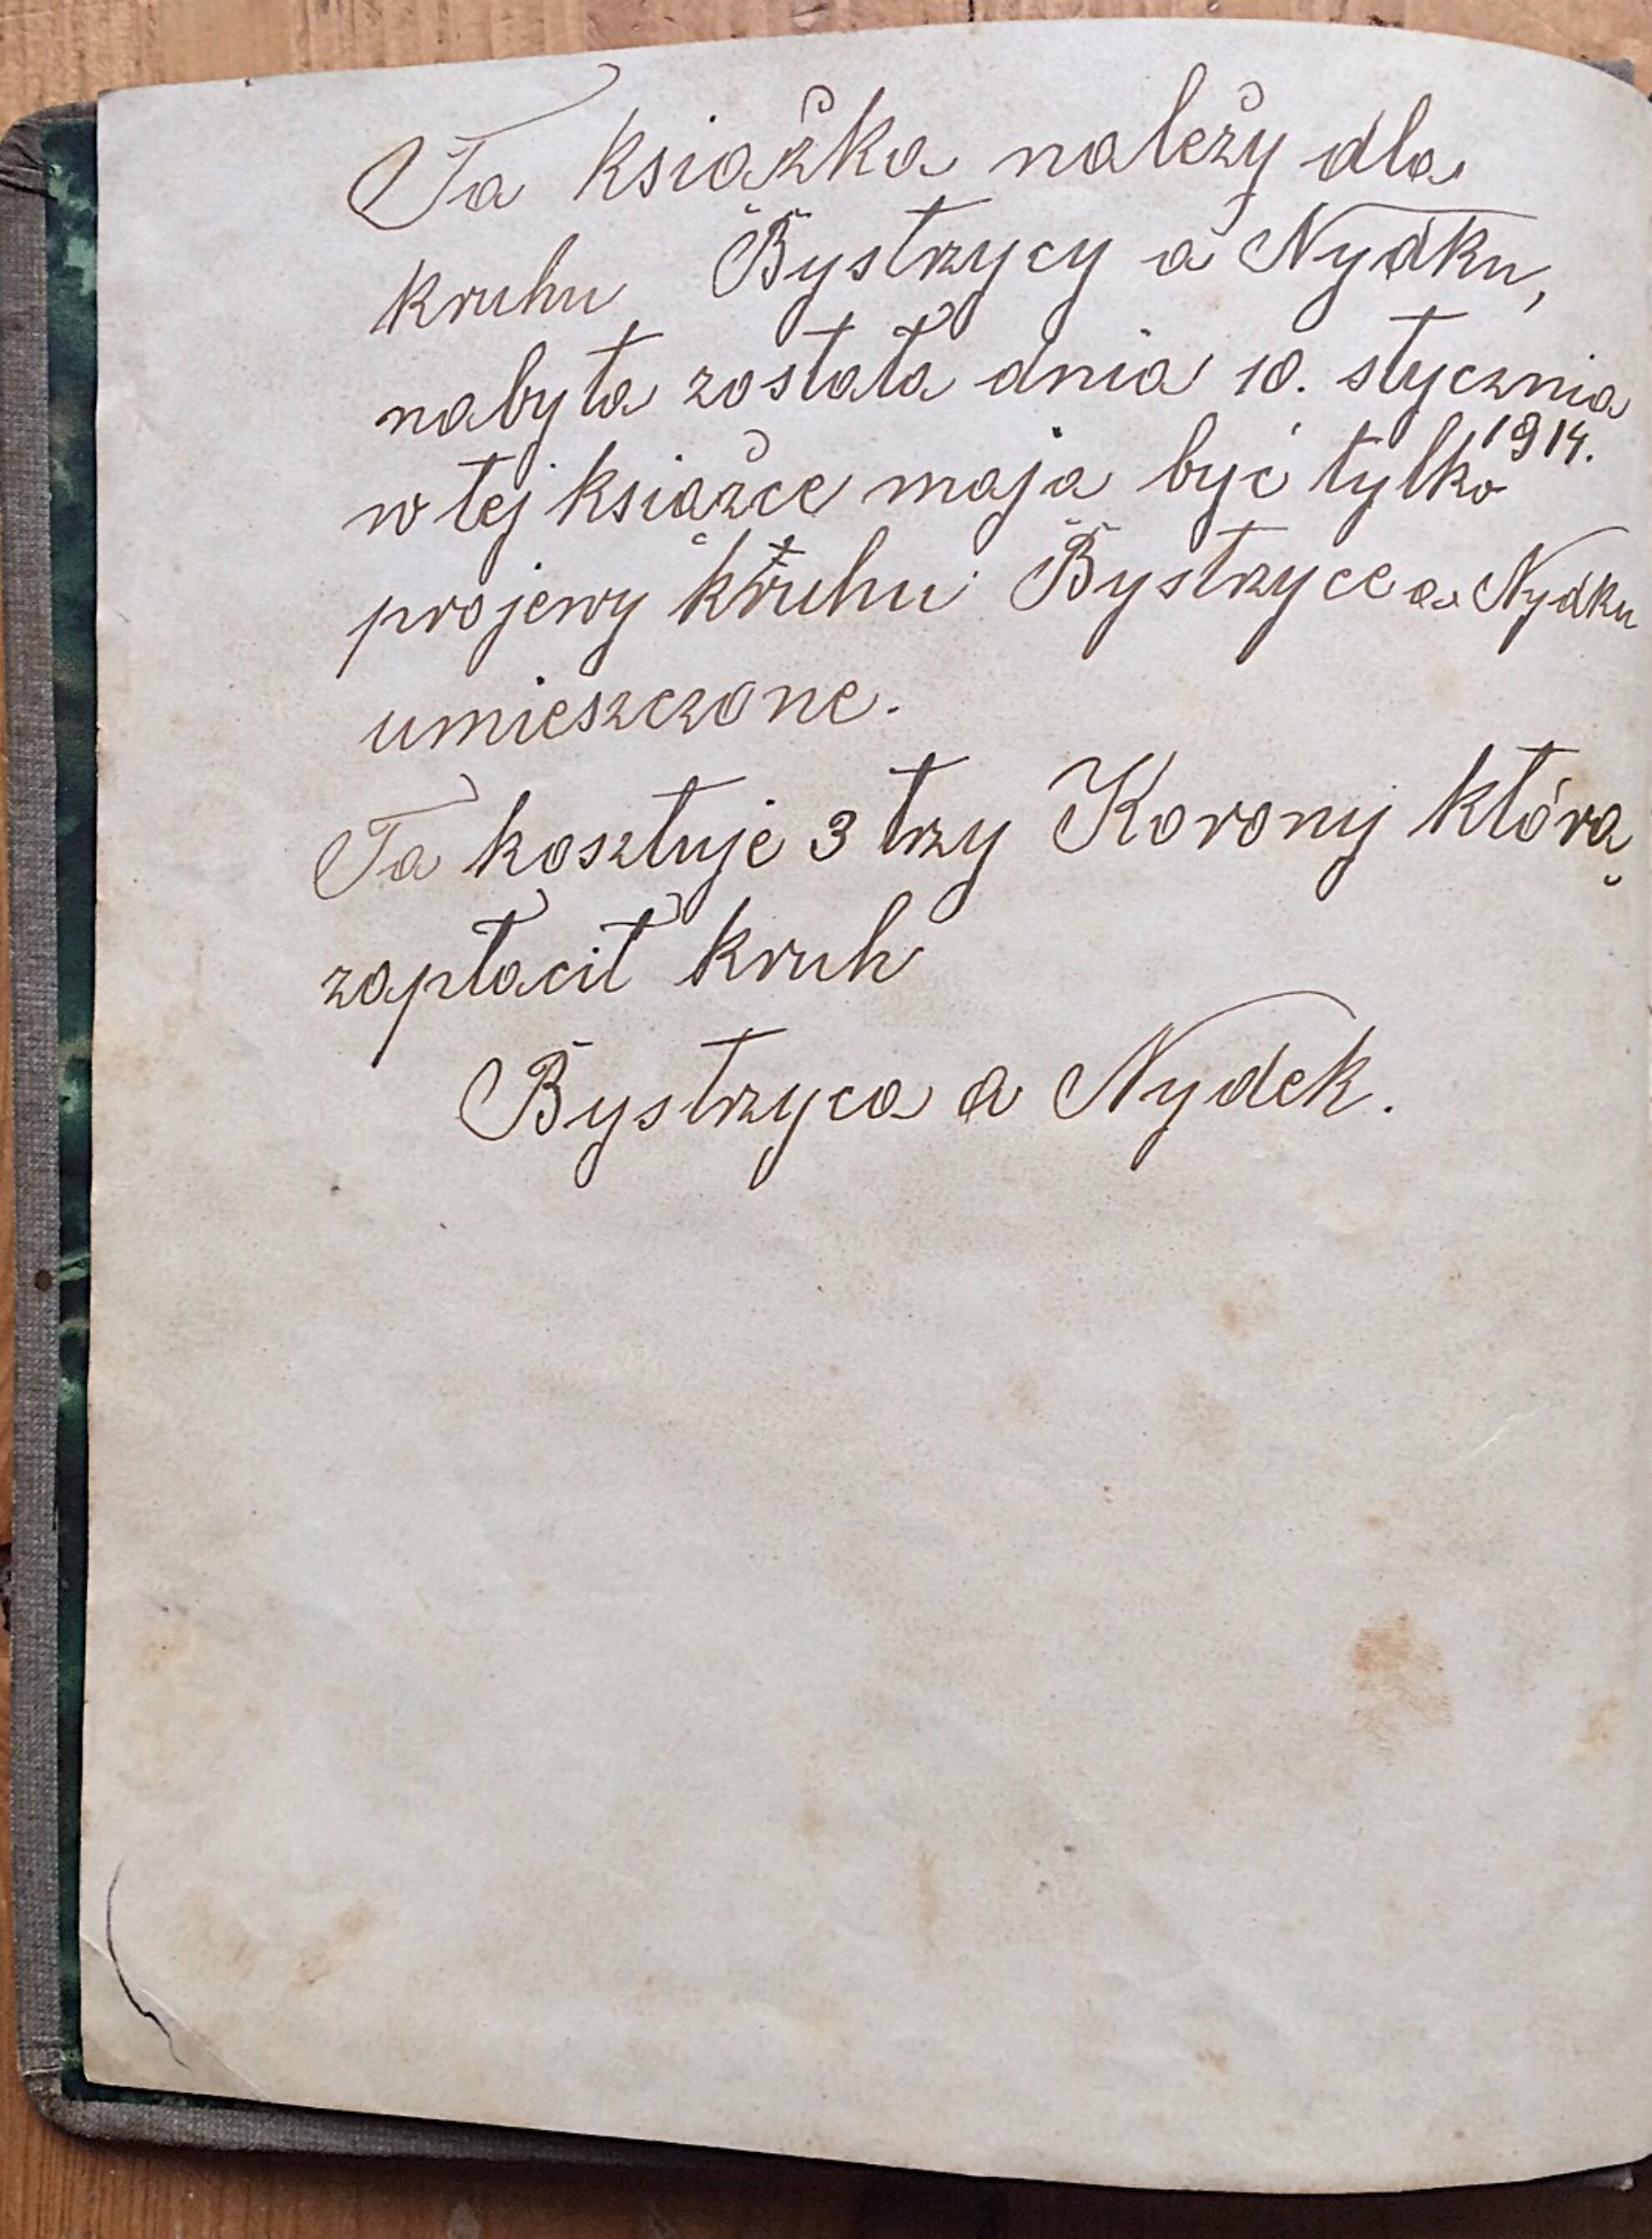 Ta ksiażka należy dla
kruhu Bystrzycy a Nydku,
nabyta została dnia 10. stycznia
1914.
w tej ksiąźce maja być tylko
projewy kruhu Bystrzyce a Nydku
umieszczone.
Ta kosztuje 3 trzy Korony którą
zapłacił kruh
Bystrzyca a Nydek.